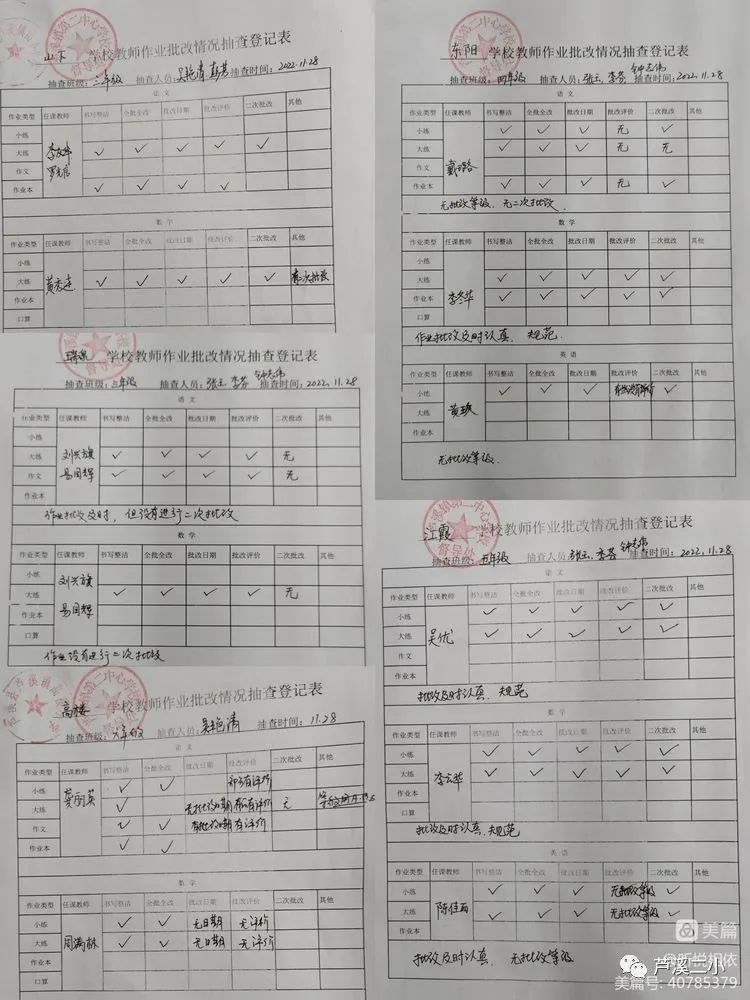 山下 学校教师作业批改情况抽查登记表
抽查班级: 二年级 抽查人员: 抽查时间: 2022.11.28
语文
作业类型 任课教师 书写整洁 全批全改 批改日期 批改评价 二次批改 其他
小练
大练 ✓ ✓ ✓ ✓ ✓
作文
作业本 ✓ ✓ ✓ ✓
数学
作业类型 任课教师 书写整洁 全批全改 批改日期 批改评价 二次批改 其他
小练
大练 ✓ ✓ ✓ ✓ ✓
作业本
口算
学校教师作业批改情况抽查登记表
抽查班级: 三年级 抽查人员: 张玉 李芬 钟志伟 抽查时间: 2022.11.28
语文
作业类型 任课教师 书写整洁 全批全改 批改日期 批改评价 二次批改 其他
小练
大练 刘兴旗 ✓ ✓ ✓ ✓ 无
作文 易国辉 ✓ ✓ ✓ ✓ 无
作业本
作业批改及时，但没有进行二次批改
数学
作业类型 任课教师 书写整洁 全批全改 批改日期 批改评价 二次批改 其他
小练 刘兴旗
大练 ✓ ✓ ✓ ✓ 无
作业本 易国辉
口算
作业没有进行二次批改
高楼 学校教师作业批改情况抽查登记表
抽查班级: 六年级 抽查人员: 吴艳清 抽查时间: 11.28
语文
作业类型 任课教师 书写整洁 全批全改 批改日期 批改评价 二次批改 其他
小练 龚丽英 ✓ ✓ 有评价
大练 ✓ 无批改日期 有评价 无
作文 ✓ ✓ 有批改日期 有评价
作业本 ✓ ✓
数学
作业类型 任课教师 书写整洁 全批全改 批改日期 批改评价 二次批改 其他
小练 ✓ ✓ 无日期 无评价
大练 周满林 ✓ ✓ 无日期 无评价
作业本
口算
东阳 学校教师作业批改情况抽查登记表
抽查班级: 四年级 抽查人员: 张玉、李芬 钟志伟 抽查时间: 2022.11.28
语文
作业类型 任课教师 书写整洁 全批全改 批改日期 批改评价 二次批改 其他
小练 ✓ ✓ ✓ 无 ✓
大练 ✓ ✓ ✓ 无 无
作文
作业本 ✓ ✓ ✓ 无 ✓
无批改等级、无二次批改.
数学
作业类型 任课教师 书写整洁 全批全改 批改日期 批改评价 二次批改 其他
小练
大练 李冬华 ✓ ✓ ✓ ✓ ✓
作业本 ✓ ✓ ✓ ✓ ✓
口算
作业批改及时认真、规范.
英语
作业类型 任课教师 书写整洁 全批全改 批改日期 批改评价 二次批改 其他
小练 ✓ ✓ ✓ ✓
大练
作业本
无批改等级.
江霞 学校教师作业批改情况抽查登记表
抽查班级: 五年级 抽查人员: 张玉、李芬 钟志伟 抽查时间: 2022.11.28
语文
作业类型 任课教师 书写整洁 全批全改 批改日期 批改评价 二次批改 其他
小练 吴优 ✓ ✓ ✓ ✓ ✓
大练 ✓ ✓ ✓ ✓ ✓
作文
作业本
批改及时认真、规范
数学
作业类型 任课教师 书写整洁 全批全改 批改日期 批改评价 二次批改 其他
小练 ✓ ✓ ✓ ✓ ✓
大练 ✓ ✓ ✓ ✓ ✓
作业本
口算
批改及时认真、规范
英语
作业类型 任课教师 书写整洁 全批全改 批改日期 批改评价 二次批改 其他
小练 ✓ ✓ ✓ 无批改等级 ✓
大练 陈佳西 ✓ ✓ ✓ 无批改等级 ✓
作业本
批改及时认真、无批改等级
美篇
芦溪二小
美篇号: 40785379